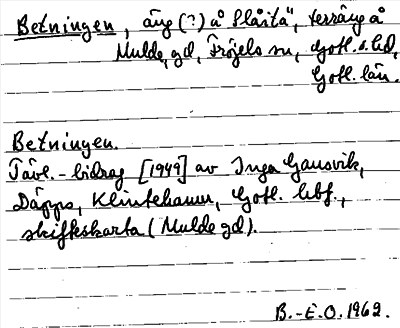 Betningen, äng (?) å Slåitä", terräng å
Mulde, gd, Fröjels sn, Gotl. s. hd,
Gotl. län.
Betningen.
Tävl.-bidrag [1949] av Inga Gansvik,
Däpps, Klintehamn, Gotl. hbf.,
skifteskarta (Mulde gd).
B.-E.O. 1962.